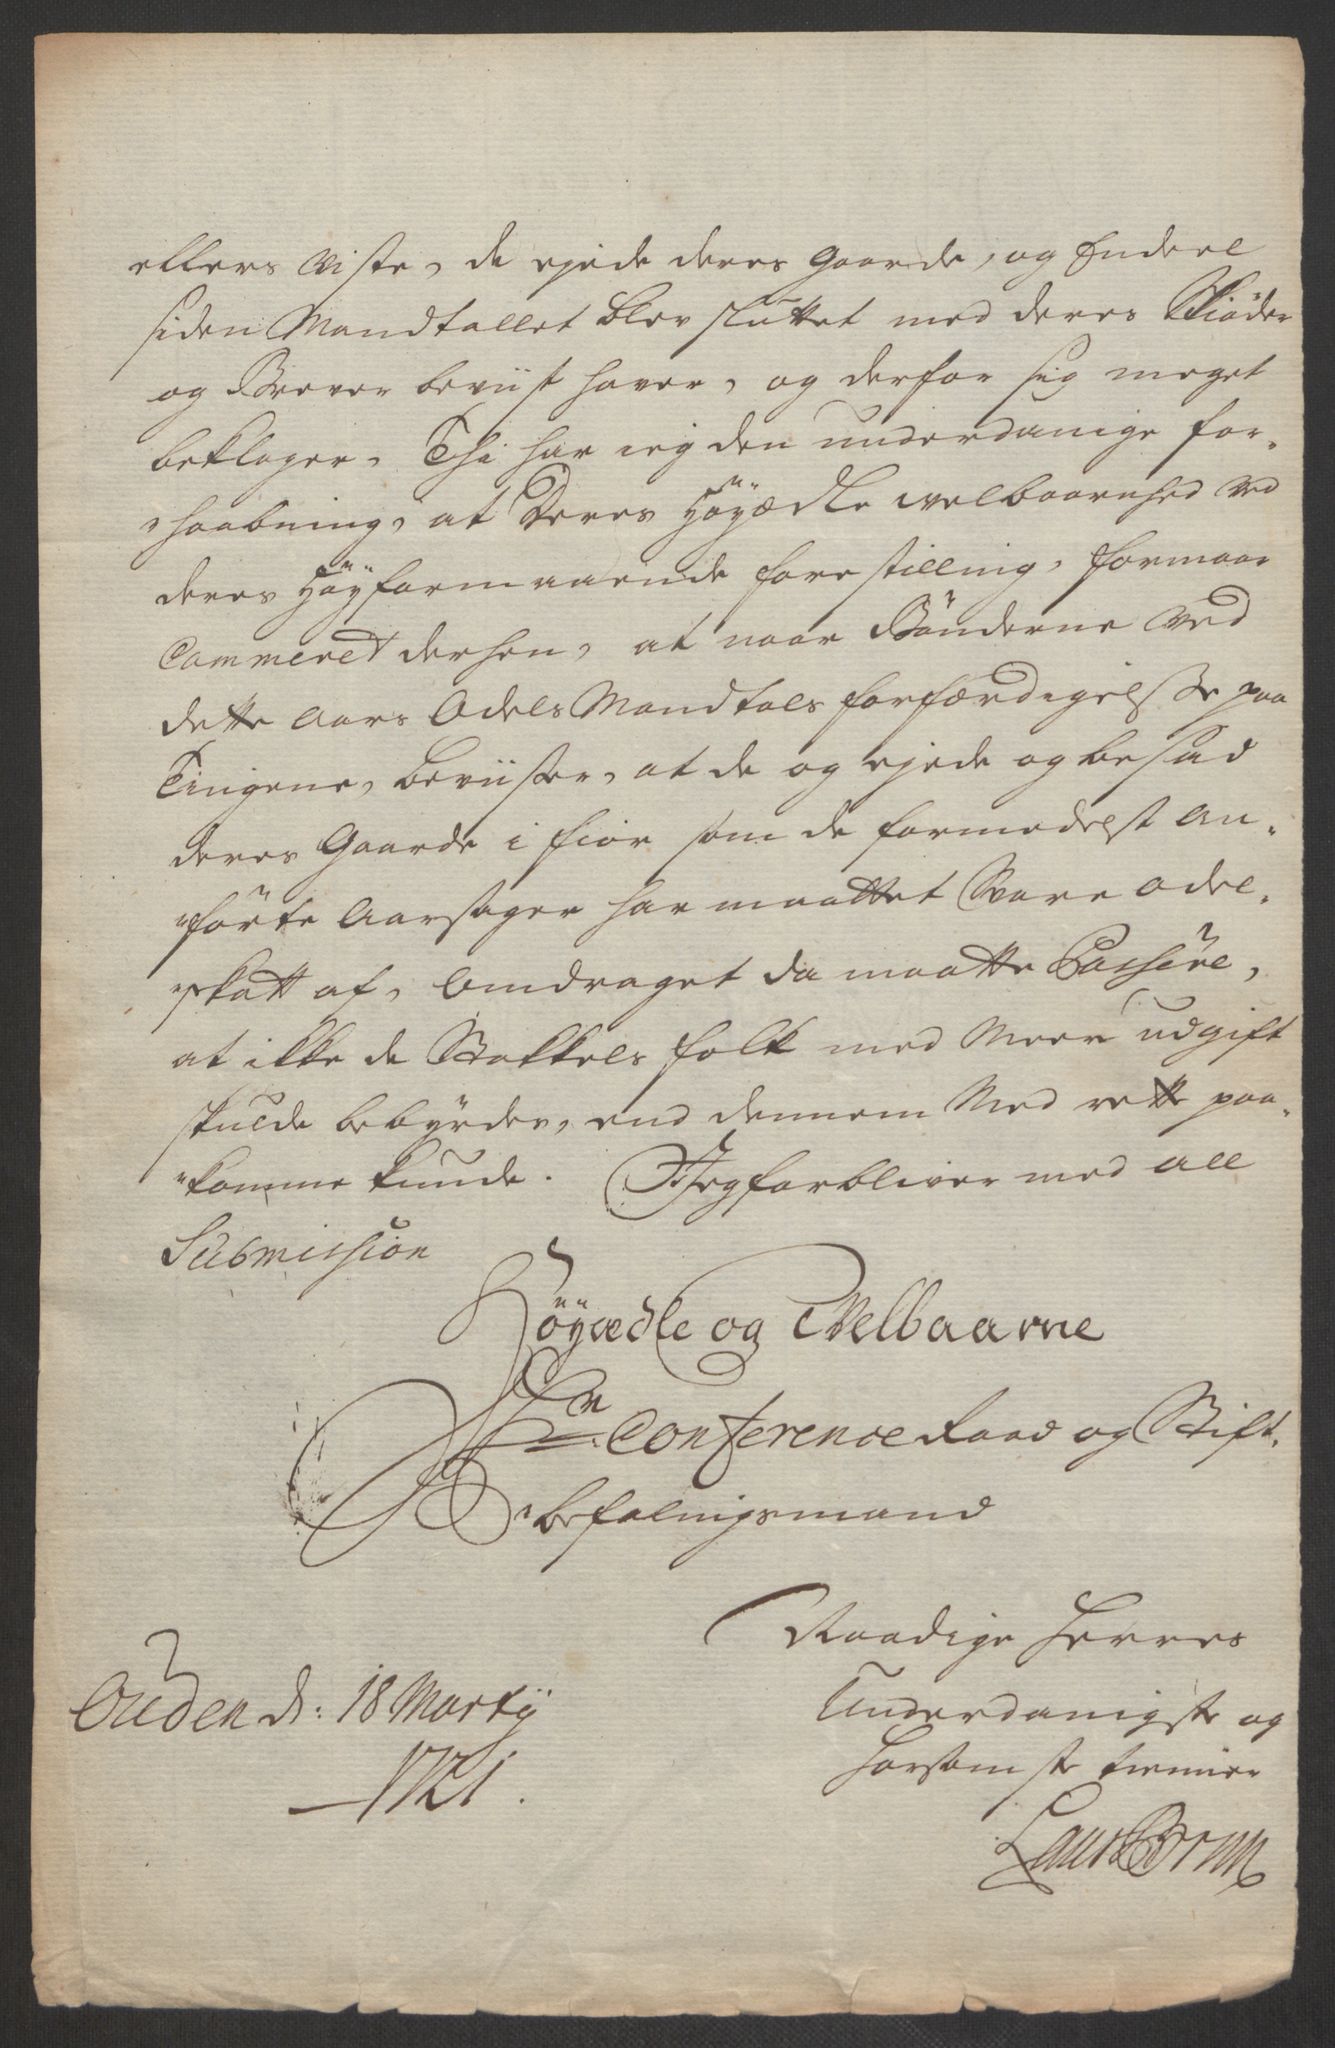 ellers viste, de ejede deres Gaarde, og Endeel
siden Mandtallet blev sluttet med deres Skiöder
og Brever beviist haver, og derfor sig meget
beklager, Thi har ieg den underdanige for-
haabning, at Deres Höÿædle Welbaarnhed ved
deres Höÿformaaende forestilling, formaar
Cammeret derhen, at naar Bönderne ved
dette Aars Odels Mandtals forfærdigelsse paa
Tingene, beviisser, at de og ejede og besad
deres Gaarde i fior som de formedelst An-
förte Aarsager har maattet Svare Odel-
skatt af, Omdraget da maatte Passere,
at ikke de Stakkels folk med Meer udgift
skulde bebyrdes, end dennem Med rette paa-
komme kunde. Jeg forbliver med all
Submission
Höÿædle og Welbaarne
Hr Conference Raad og Stift-
befalningsmand
Naadige Herres
Underdanigste og
Horsomste tienner
Ouden d: 18 Martÿ
1721.
Laur Brun